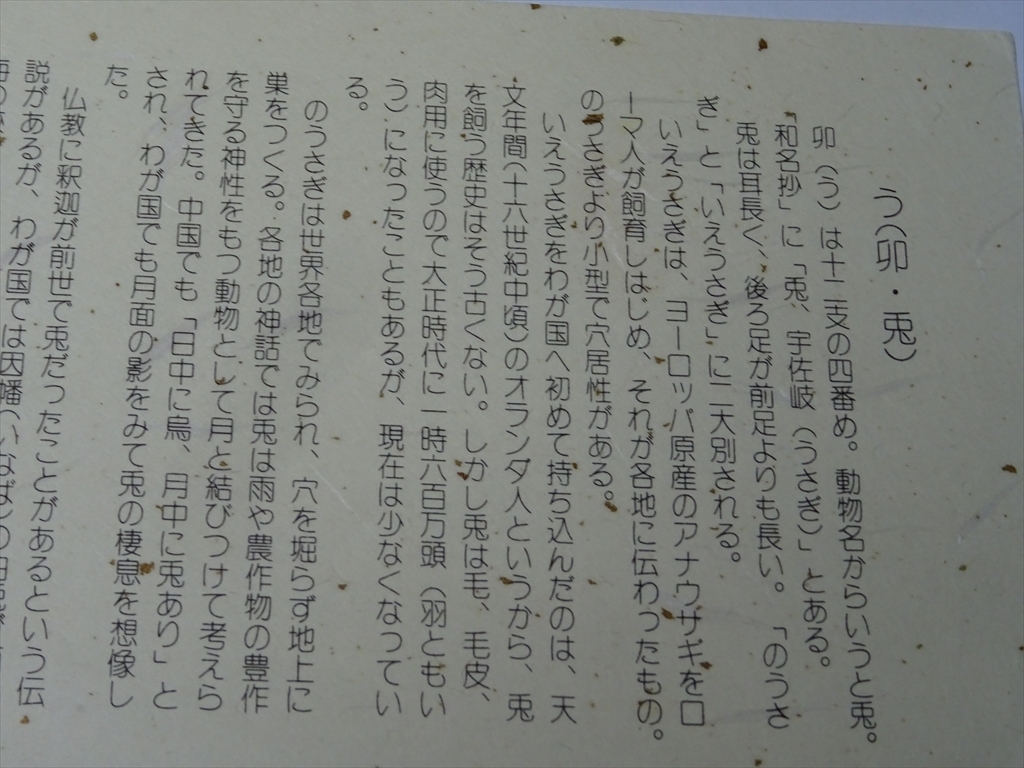 う(卯・兎)
卯(う)は十二支の四番め。動物名からいうと兎。
「和名抄」に「兎、宇佐岐(うさぎ)」とある。
兎は耳長く、後ろ足が前足よりも長い。「のうさ
ぎ」と「いえうさぎ」に二大別される。
いえうさぎは、ヨーロッパ原産のアナウサギをロ
ーマ人が飼育しはじめ、それが各地に伝わったもの。
のうさぎより小型で穴居性がある。
いえうさぎをわが国へ初めて持ち込んだのは、天
文年間(十六世紀中頃)のオランダ人というから、兎
を飼う歴史はそう古くない。しかし兎は毛、毛皮、
肉用に使うので大正時代に一時六百万頭(羽ともい
う)になったこともあるが、現在は少なくなってい
る。
のうさぎは世界各地でみられ、穴を堀らず地上に
巣をつくる。各地の神話では兎は雨や農作物の豊作
を守る神性をもつ動物として月と結びつけて考えら
れてきた。中国でも「日中に烏、月中に兎あり」と
され、わが国でも月面の影をみて兎の棲息を想像し
た。
仏教に釈迦が前世で兎だったことがあるという伝
説があるが、わが国では因幡(いなば)の